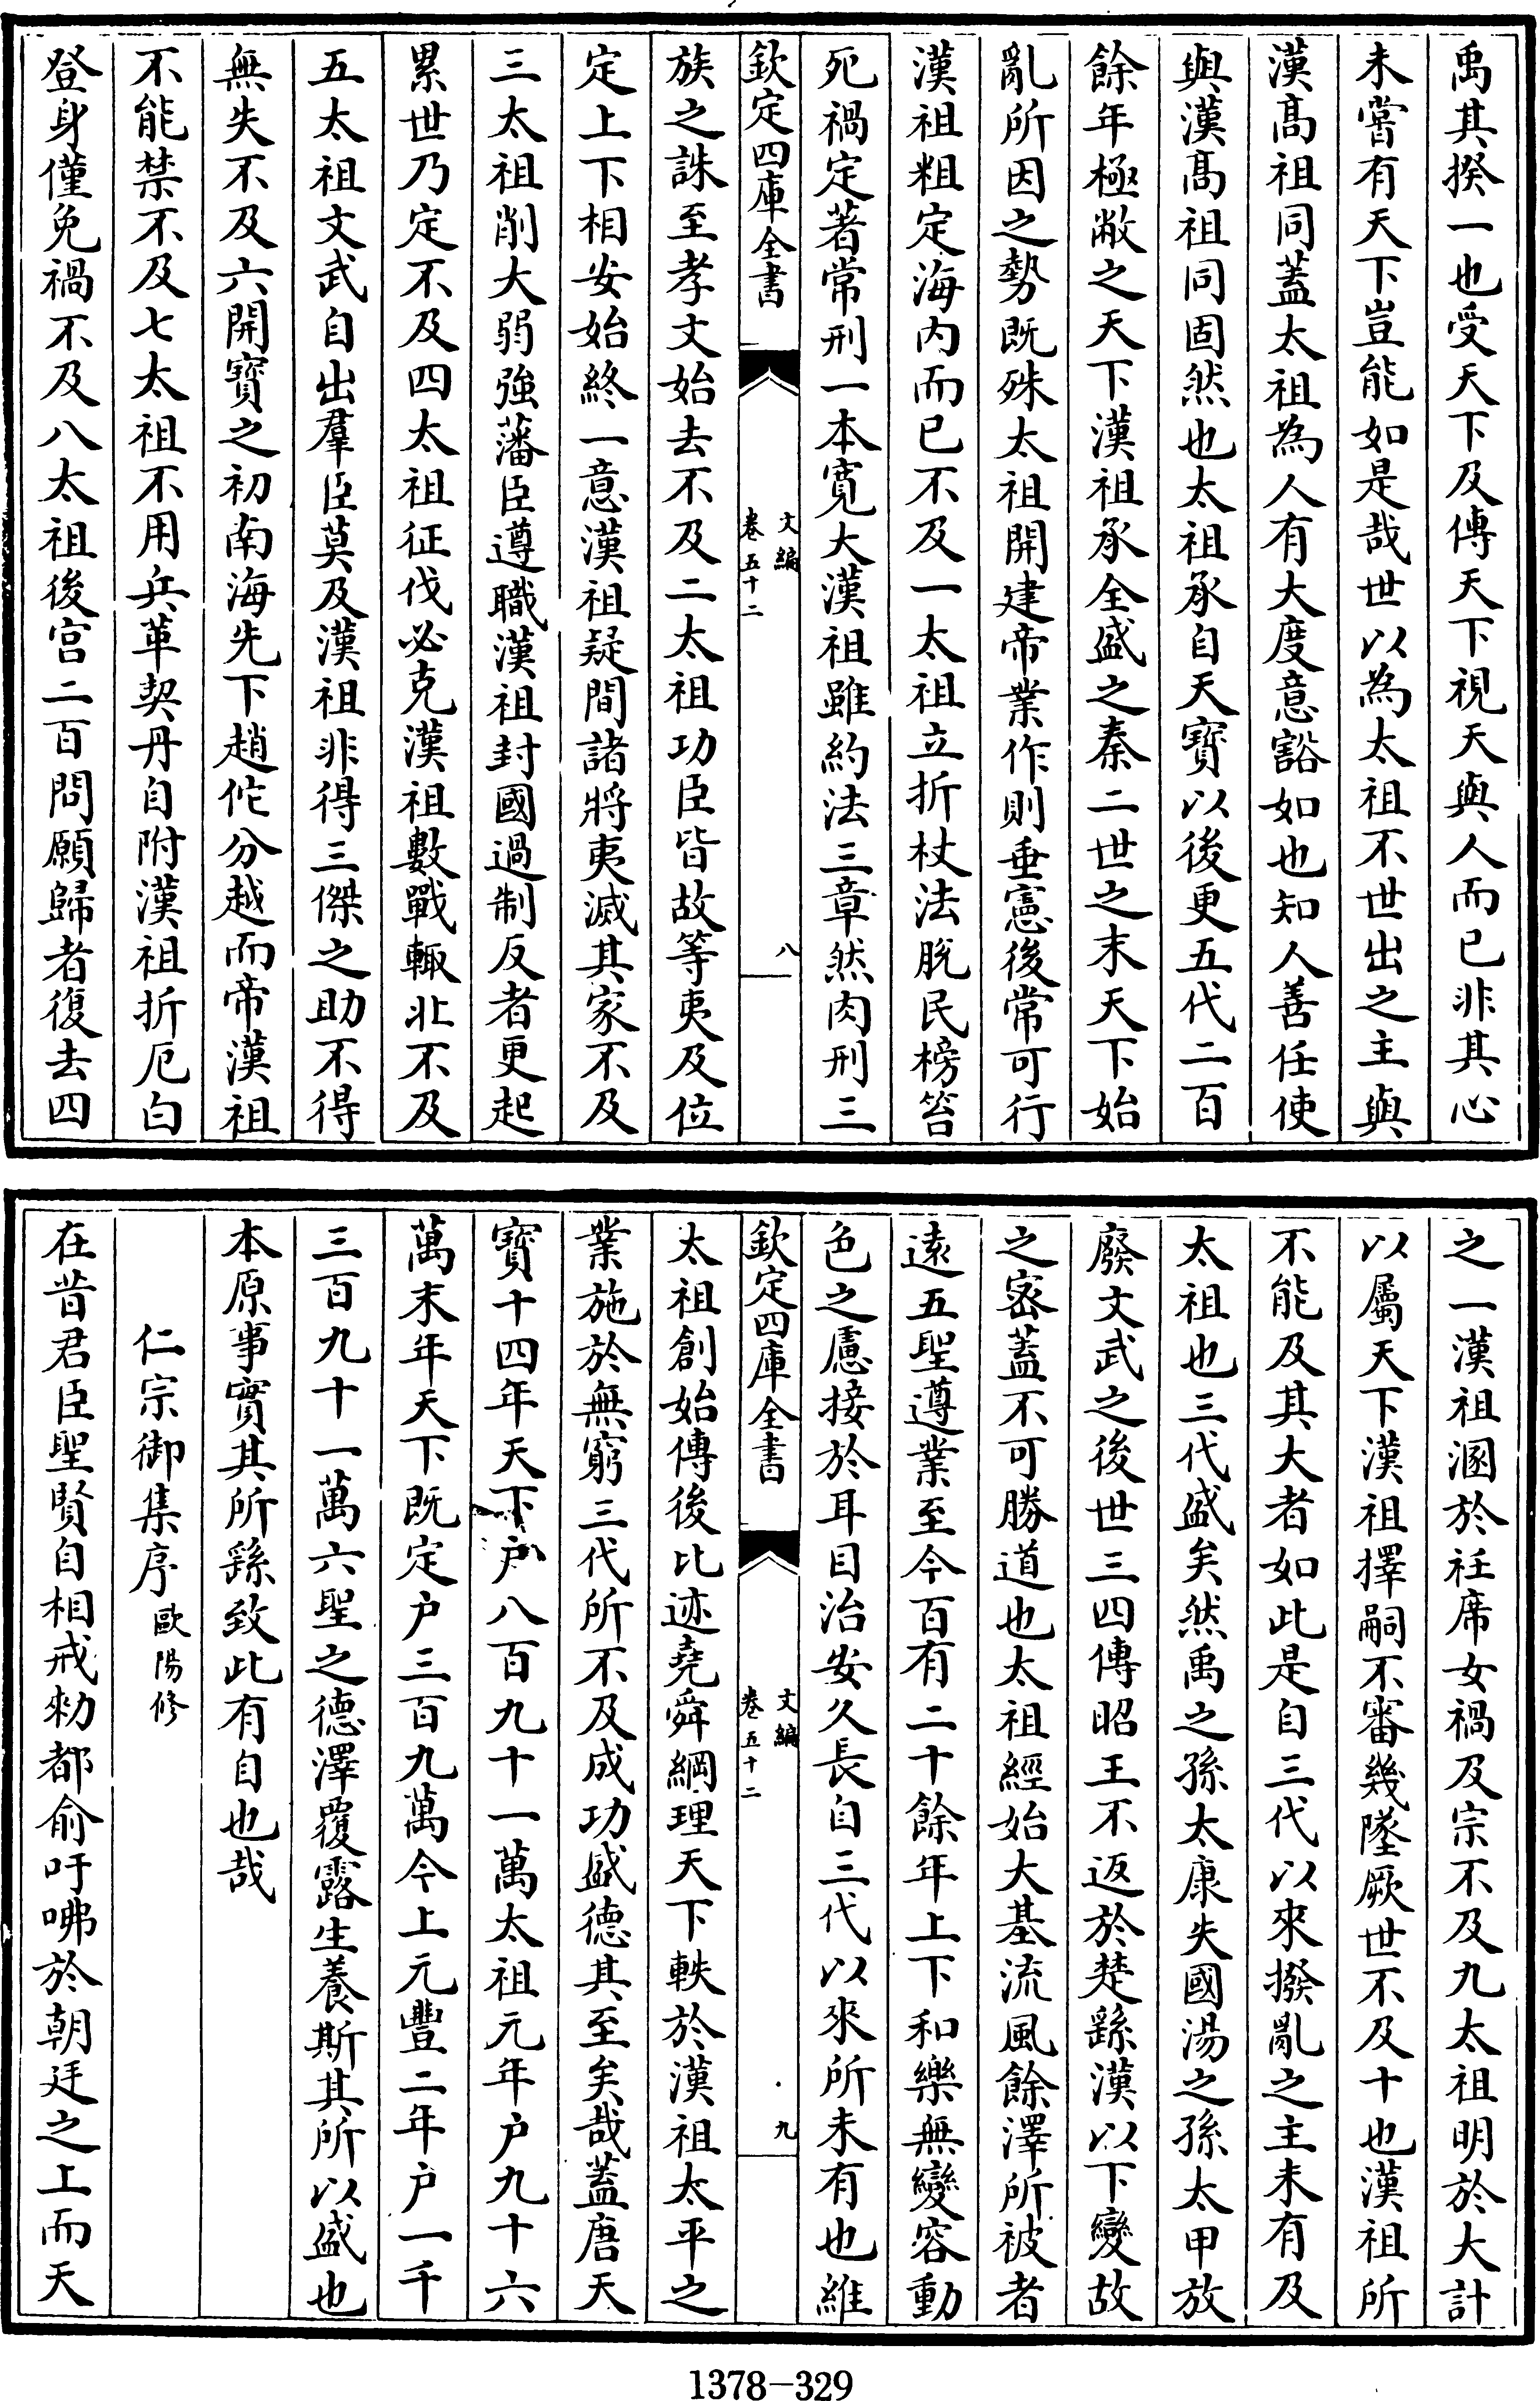 禹其揆一也受天下及傳天下視天與人而已非其心
未嘗有天下豈能如是哉世以為太祖不世出之主與
漢髙祖同蓋太祖為人有大度意豁如也知人善任使
與漢髙祖同固然也太祖承自天寶以後更五代二百
餘年極敝之天下漢祖承全盛之秦二世之末天下始
亂所因之勢既殊太祖開建帝業作則垂憲後常可行
漢祖粗定海内而已不及一太祖立折杖法脱民榜笞
死禍定著常刑一本寛大漢祖雖約法三章然肉刑三
欽定四庫全書
文編
卷五十二
八
族之誅至孝文始去不及二太祖功臣皆故等夷及位
定上下相安始終一意漢祖疑間諸將夷滅其家不及
三太祖削大弱強藩臣遵職漢祖封國過制反者更起
累世乃定不及四太祖征伐必克漢祖數戰輙北不及
五太祖文武自出羣臣莫及漢祖非得三傑之助不得
無失不及六開寶之初南海先下趙佗分越而帝漢祖
不能禁不及七太祖不用兵革契丹自附漢祖折厄白
登身僅免禍不及八太祖後宫二百問願歸者復去四
之一漢祖溷於袵席女禍及宗不及九太祖明於大計
以屬天下漢祖擇嗣不審幾墜厥世不及十也漢祖所
不能及其大者如此是自三代以來撥亂之主未有及
太祖也三代盛矣然禹之孫太康失國湯之孫太甲放
廢文武之後世三四傳昭王不返於楚繇漢以下變故
之密蓋不可勝道也太祖經始大基流風餘澤所被者
遠五聖遵業至今百有二十餘年上下和樂無變容動
色之慮接於耳目治安久長自三代以來所未有也維
欽定四庫全書
文編
卷五十二
九
太祖創始傳後比迹堯舜綱理天下軼於漢祖太平之
業施於無窮三代所不及成功盛德其至矣哉蓋唐天
寶十四年天下户八百九十一萬太祖元年户九十六
萬末年天下既定户三百九萬今上元豐二年户一千
三百九十一萬六聖之德澤覆露生養斯其所以盛也
本原事實其所繇致此有自也哉
仁宗御集序 歐陽修
在昔君臣聖賢自相戒勑都俞吁咈於朝廷之上而天
1378-329